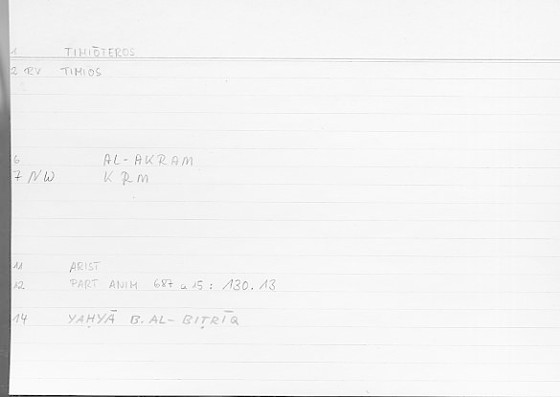 1 TIMIŌTEROS
2 RV TIMIOS
6 AL-AKRAM
7 NW KRM
11 ARIST
12 PART ANIM 687 a 15 : 130.13
14 YAḤYĀ B. AL-BIṬRĪQ